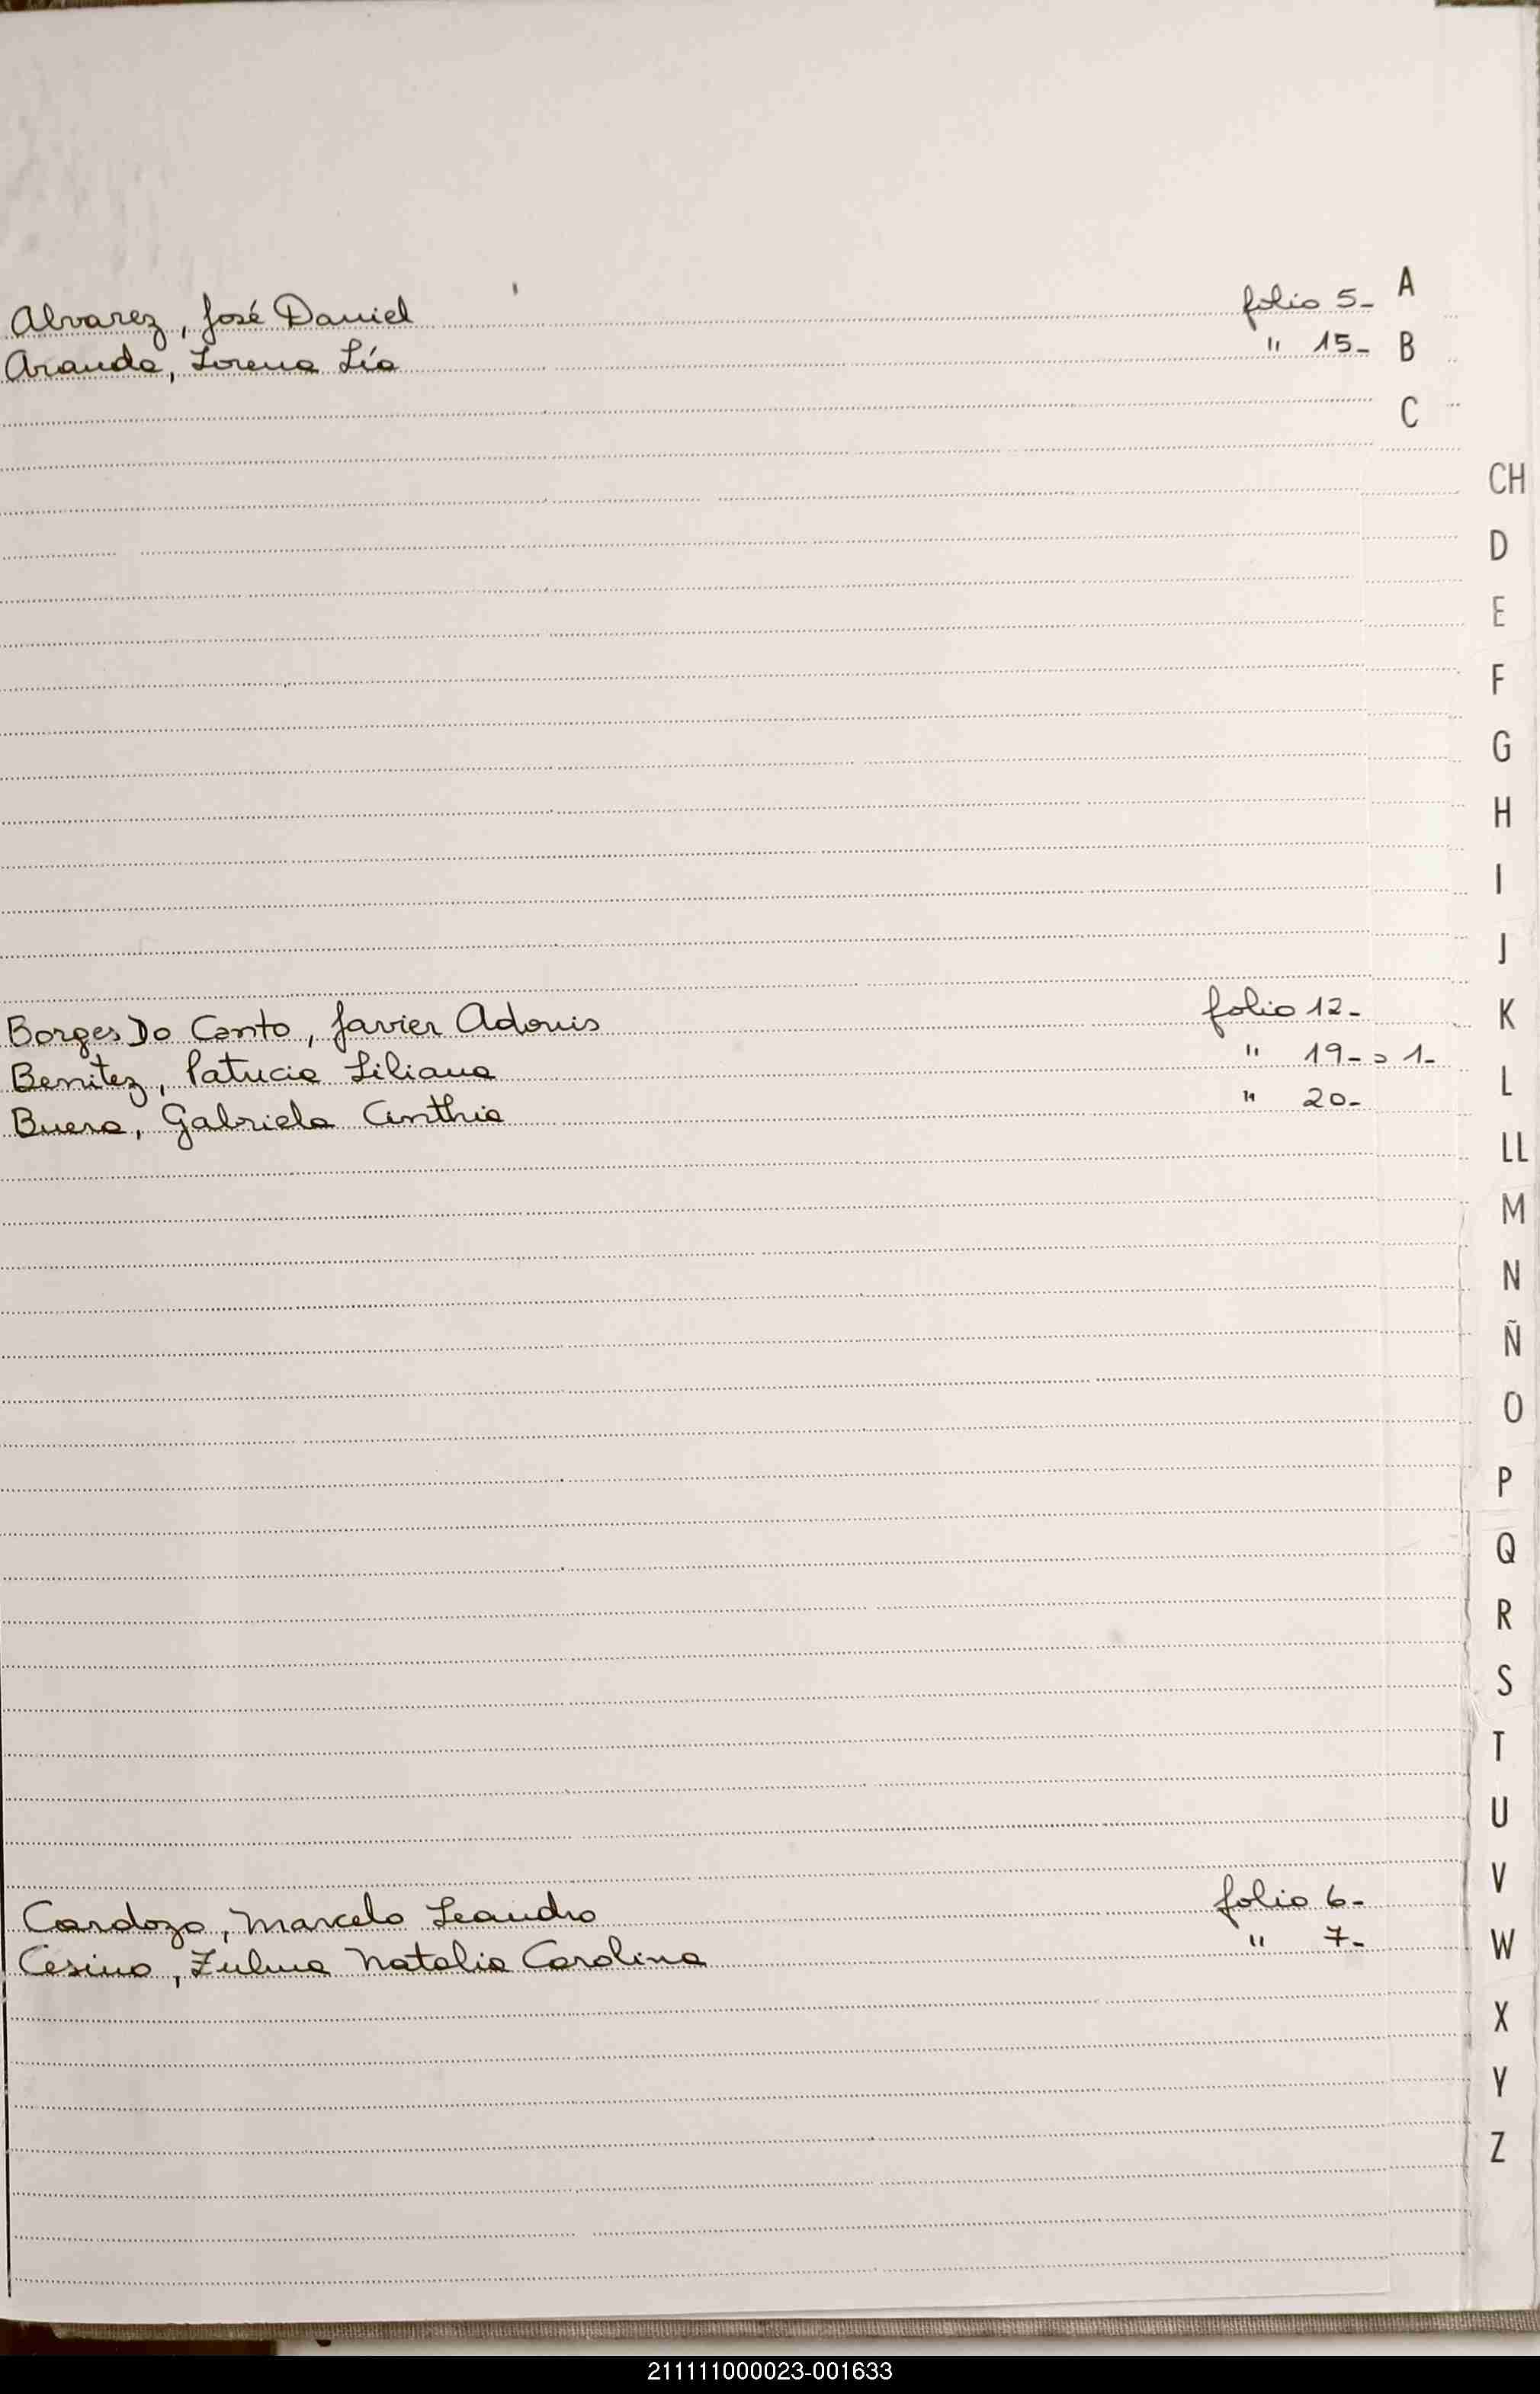 Alvarez, José Daniel folio 5- A
Aranda, Lorena Lía " 15- B
C
CH
D
E
F
G
H
I
J
Borges Do Canto, Javier Adonis folio 12- K
Benitez, Patricia Liliana " 19- 1- L
Buera, Gabriela Cinthia " 20-
LL
M
N
Ñ
O
P
Q
R
S
T
U
V
Cardozo, Marcelo Leandro folio 6-
Cesino, Zulma Natalia Carolina " 7- W
X
Y
Z
211111000023-001633